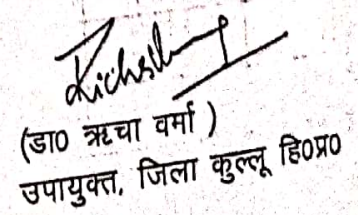 (डा0 ऋचा वर्मा )
उपायुक्त, जिला कुल्लू हि0प्र0